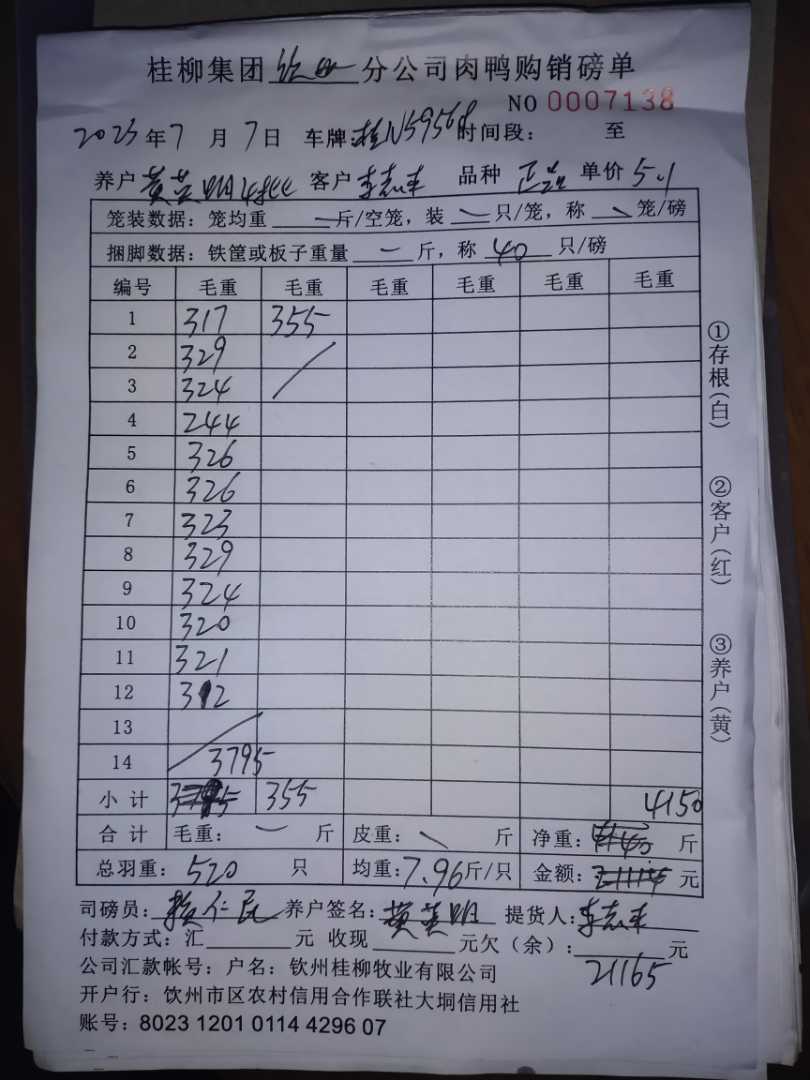 桂柳集团 钦州 分公司肉鸭购销磅单
NO 0007138
2023年7月7日 车牌:桂N59568 时间段: 至
养户 黄英明 客户 李志丰 品种 单价 5.1
笼装数据:笼均重 一 斤/空笼,装 一 只/笼,称 笼/磅
捆脚数据:铁筐或板子重量 一 斤,称 40 只/磅
编号 毛重 毛重 毛重 毛重 毛重 毛重
1 317 355
2 329
3 324
4 244
5 326
6 326
7 323
8 329
9 324
10 320
11 321
12 312
13
14 3795
小计 355 4150
合计 毛重: 一 斤 皮重: 斤 净重: 斤
总羽重:520 只 均重:7.96斤/只 金额: 元
司磅员: 养户签名:黄英明 提货人:李志丰
付款方式:汇 元 收现 元欠(余): 元
21165
公司汇款帐号:户名:钦州桂柳牧业有限公司
开户行:饮州市区农村信用合作联社大垌信用社
账号:8023 1201 0114 4296 07
①存根(白)
②客户(红)
③养户(黄)